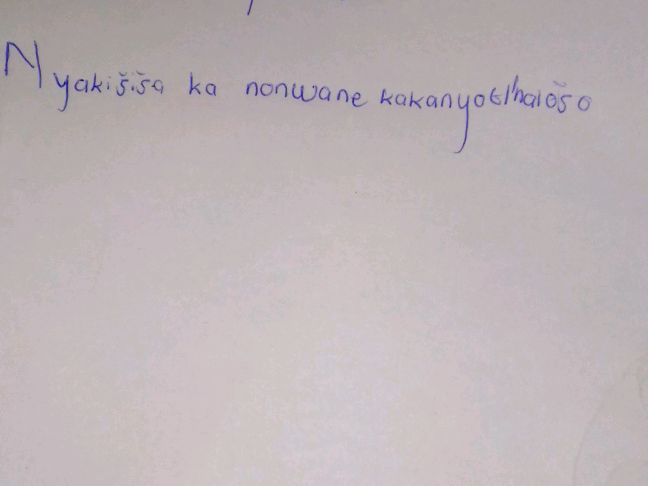 Nyakišiša ka nonwane kakanyotlhalošo